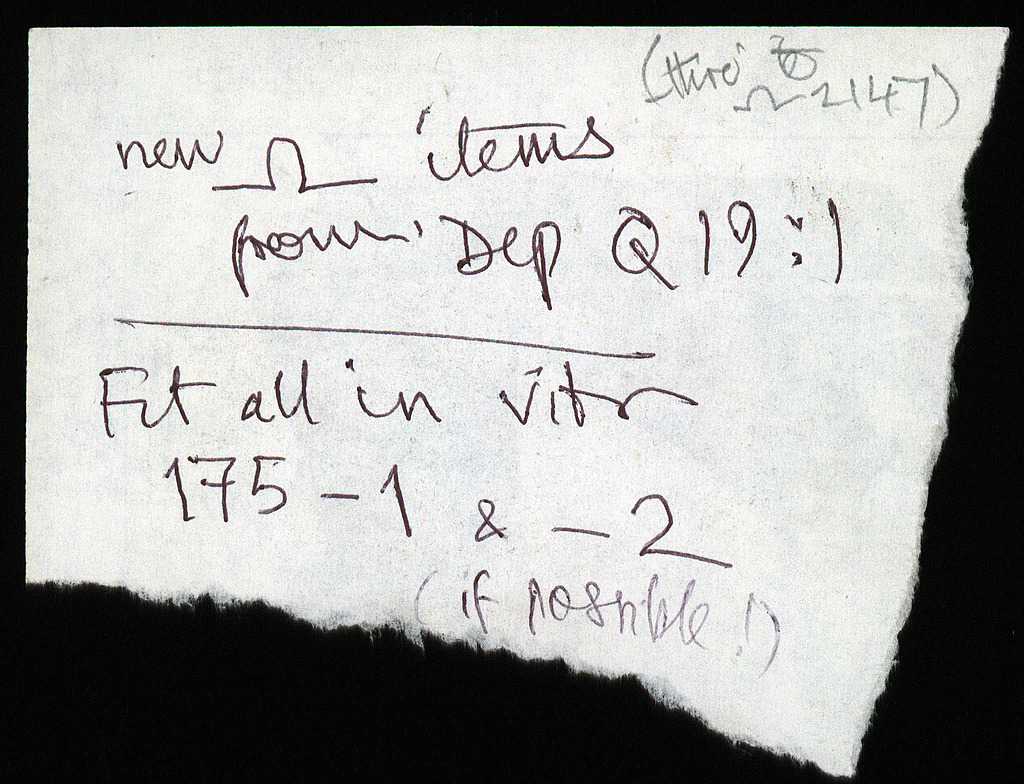 (thro' to
Ω 2147)
new Ω items
from Dep Q 19:1
Fit all in vitr
175-1 & -2
(if possible!)